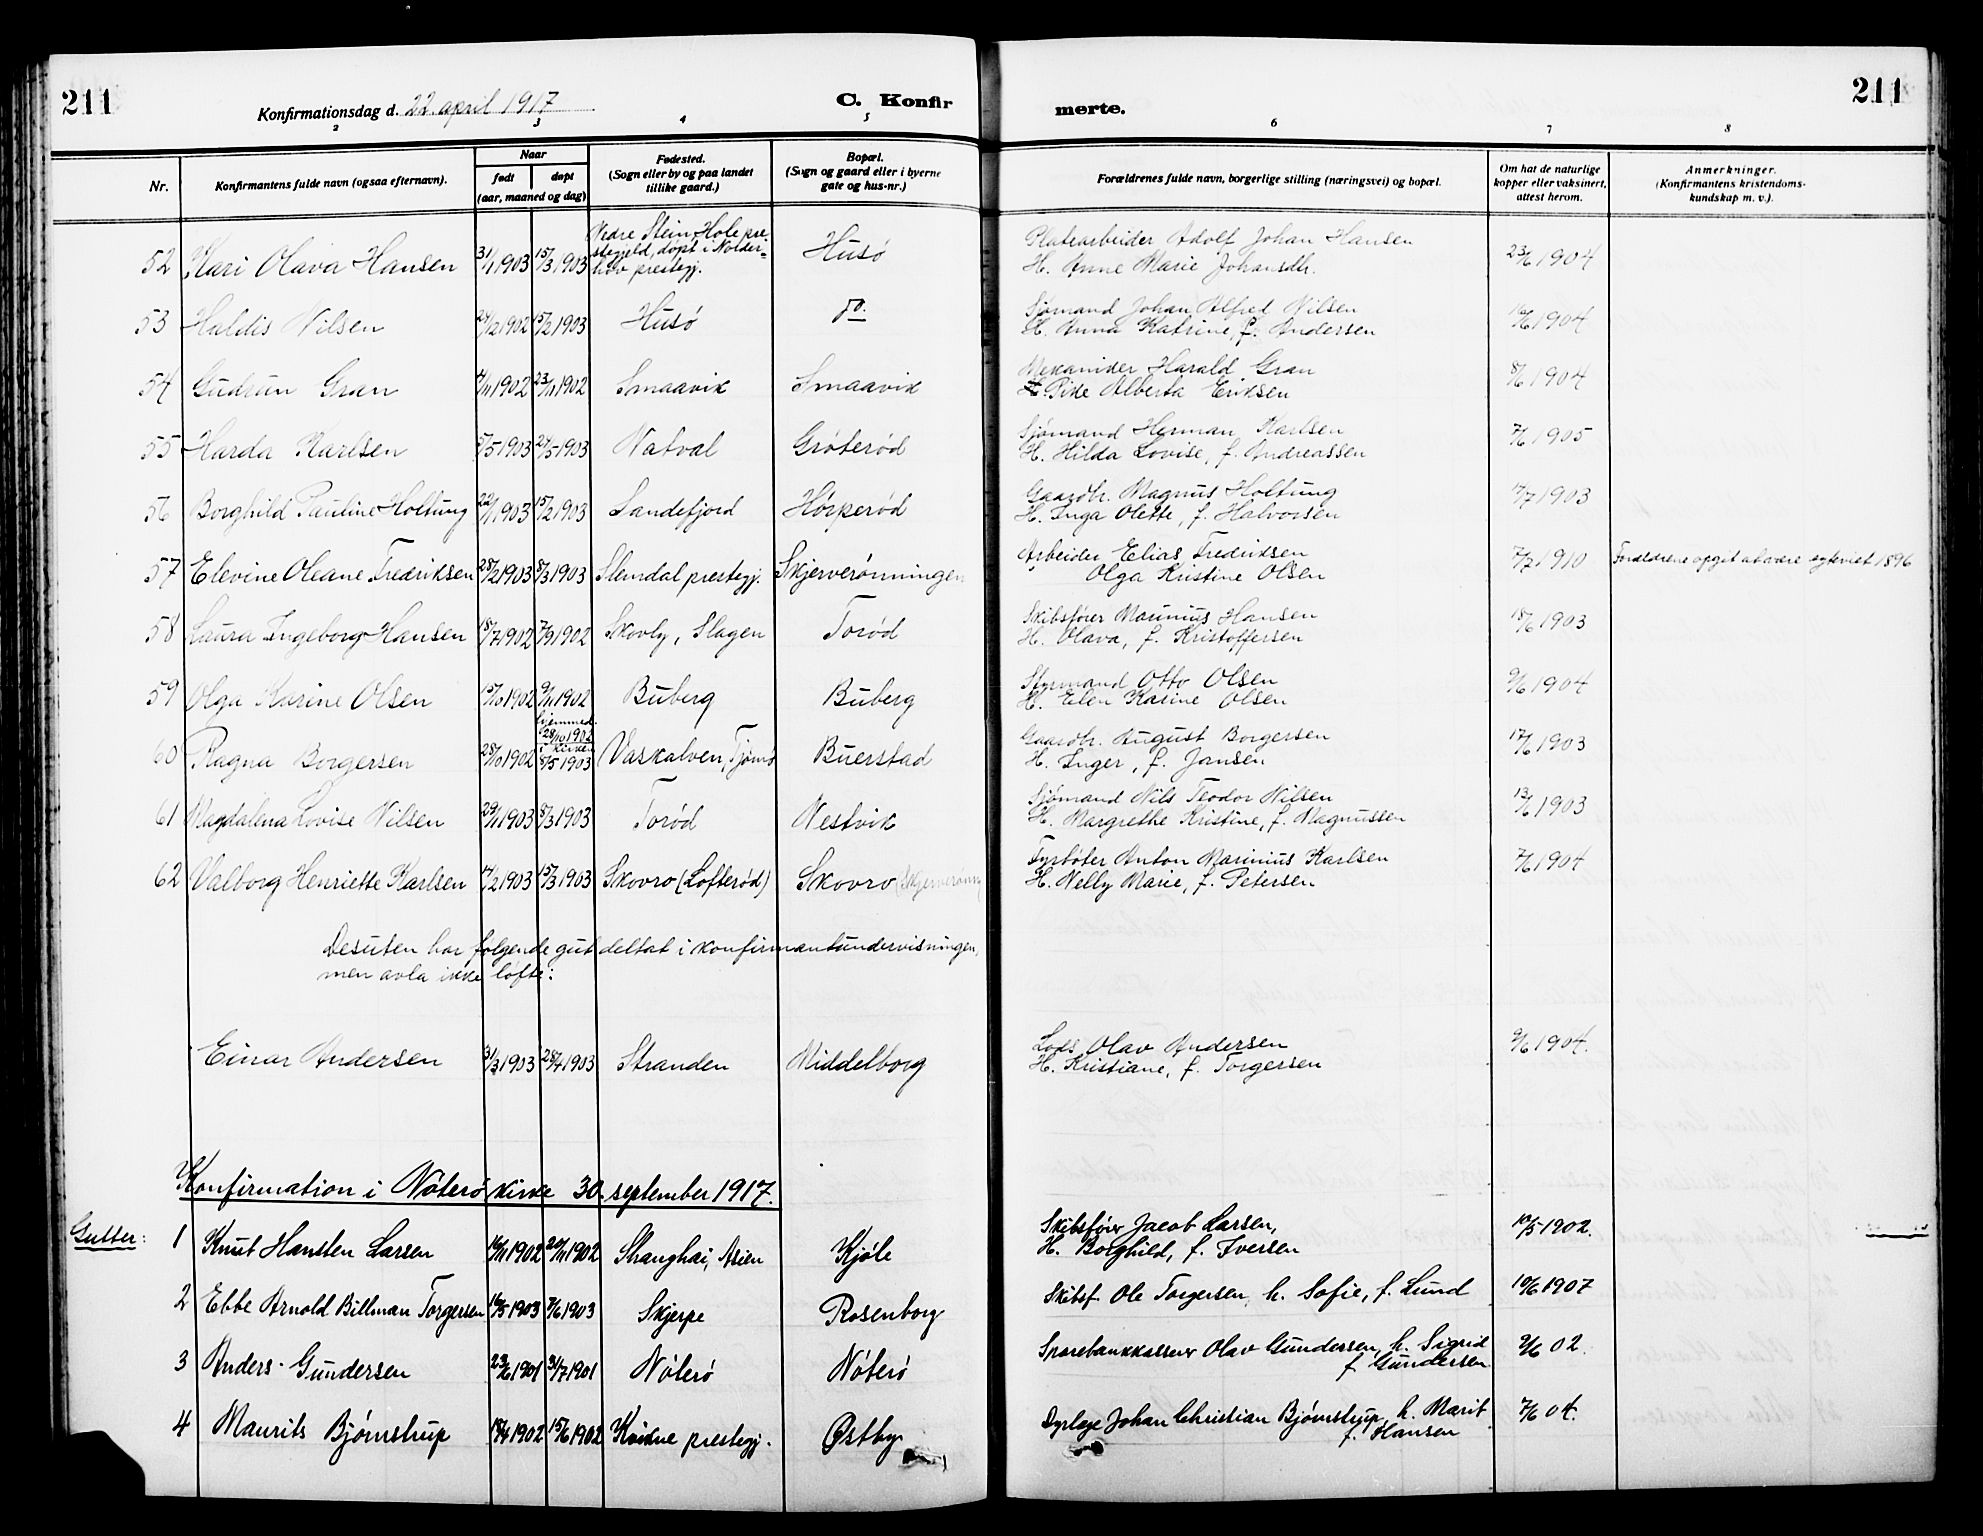 211
Konfirmationsdag d. 22. april 1917
C. Konfir
merte.
211
2 3 4 5 6 7 8
Nr.
Konfirmantens fulde navn (ogsaa efternavn).
Naar
født
døpt
(aar, maaned og dag)
Fødested.
(Sogn eller by og paa landet
tillike gaard.)
Bopæl.
(Sogn og gaard eller i byerne
gate og hus-nr.)
Forældrenes fulde navn, borgerlige stilling (næringsvei) og bopæl.
Om hat de naturlige
kopper eller vaksinert,
attest herom.
Anmerkninger.
(Konfirmantens kristendoms-
kundskap m. v.).
52 Kari Olava Hansen 31/1 1903 15/3 1903
Nedre Stein Hole pre
stegjeld, døpt i Norder-
hov prestegj.
Husø
Platearbeider Adolf Johan Hansen
H. Anne Marie Johansdtr.
23/6 1904
53 Haldis Nilsen 24/12 1902 15/2 1903 Husø do.
Sjømand Johan Alfred Nilsen
H. Anna Katrine, f. Andersen
16/6 1904
54 Gudrun Gran 4/11 1902 23/11 1902 Smaavik Smaavik
Mekaniker Harald Gran
Pike Alberta Eriksen
8/6 1904
55 Harda Karlsen 5/5 1903 24/5 1903 Natval Grøterød
Sjømand Herman Karlsen
H. Hilda Lovise, f. Andreassen
7/6 1905
56 Borghild Pauline Holtung 22/1 1903 15/2 1903 Sandefjord Hørperød
Gaardbr. Magnus Holtung
H. Inga Olette, f. Halvorsen
17/7 1903
57 Elevine Oleane Fredriksen 28/2 1903 8/3 1903 Slemdal prestegj. Skjerverønningen
Arbeider Elias Fredriksen
Olga Kristine Olsen
7/7 1910
Forældrene opgit at være egteviet 1896
58 Laura Ingeborg Hansen 18/7 1902 7/9 1902 Skovly, Slagen Torød
Skibsfører Marinius Hansen
H. Olava, f. Kristoffersen
18/6 1903
59 Olga Karine Olsen 15/10 1902 9/11 1902 Buberg Buberg
Styrmand Otto Olsen
H. Elen Karine Olsen
9/6 1904
60 Ragna Borgersen 28/10 1902
hjemmed.
28/10 1902
i kirken
8/5 1903
Vaskalven, Tjømø Buerstad
Gaardbr. August Borgersen
H. Inger, f. Jansen
17/6 1903
61 Magdalena Lovise Nilsen 29/1 1903 8/3 1903 Torød Vestvik
Sjømand Nils Teodor Nilsen
H. Margrethe Kristine, f. Magnussen
13/6 1903
62 Valborg Henriette Karlsen 14/2 1903 15/3 1903 Skovro (Lofterød) Skovro (Skjerverønn
Fyrbøter Anton Marinius Karlsen
H. Nelly Marie, f. Petersen
7/6 1904
Desuten har følgende gut deltat i konfirmantundervisningen,
men avla ikke løfte:
Einar Andersen 31/3 1903 28/4 1903 Stranden Middelborg
Lods Olav Andersen
H. Kristiane, f. Torgersen
9/6 1904.
Konfirmation i Nøterø kirke 30. september 1917.
Gutter:
1 Knut Hansten Larsen 16/11 1902 20/11 1902 Shanghai, Asien Kjøle
Skibsfører Jacob Larsen,
H. Borghild, f. Iversen
12/5 1902.
2 Ebbe Arnold Billman Torgersen 16/5 1903 7/6 1903 Skjerpe Rosenborg
Skibsf. Ole Torgersen, h. Sofie, f. Lund
10/6 1907
3 Anders Gundersen 23/6 1901 31/7 1901 Nøterø Nøterø
Sparebankkasserer Olav Gundersen, h. Sigrid
f. Gundersen
9/6 02.
4 Maurits Bjørnstrup 18/4 1902 15/6 1902 Kvikne prestegj. Østby
Dyrlæge Johan Christian Bjørnstrup, h. Marit
f. Hansen
7/6 04.